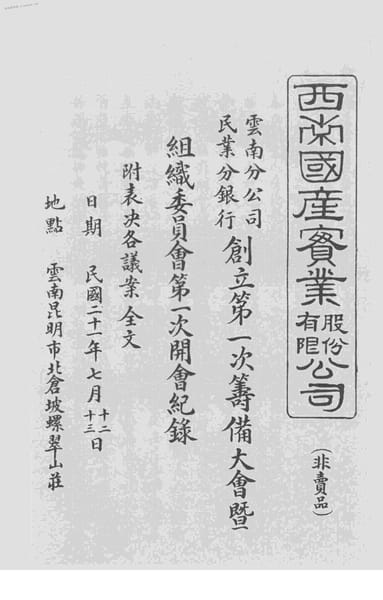 西南國產實業股份有限公司
(非賣品)
雲南分公司
民業分銀行
創立第一次籌備大會暨
組織委員會第一次開會紀錄
附表決各議案全文
日期 民國二十一年七月十二十三日
地點 雲南昆明市北倉坡螺翠山莊